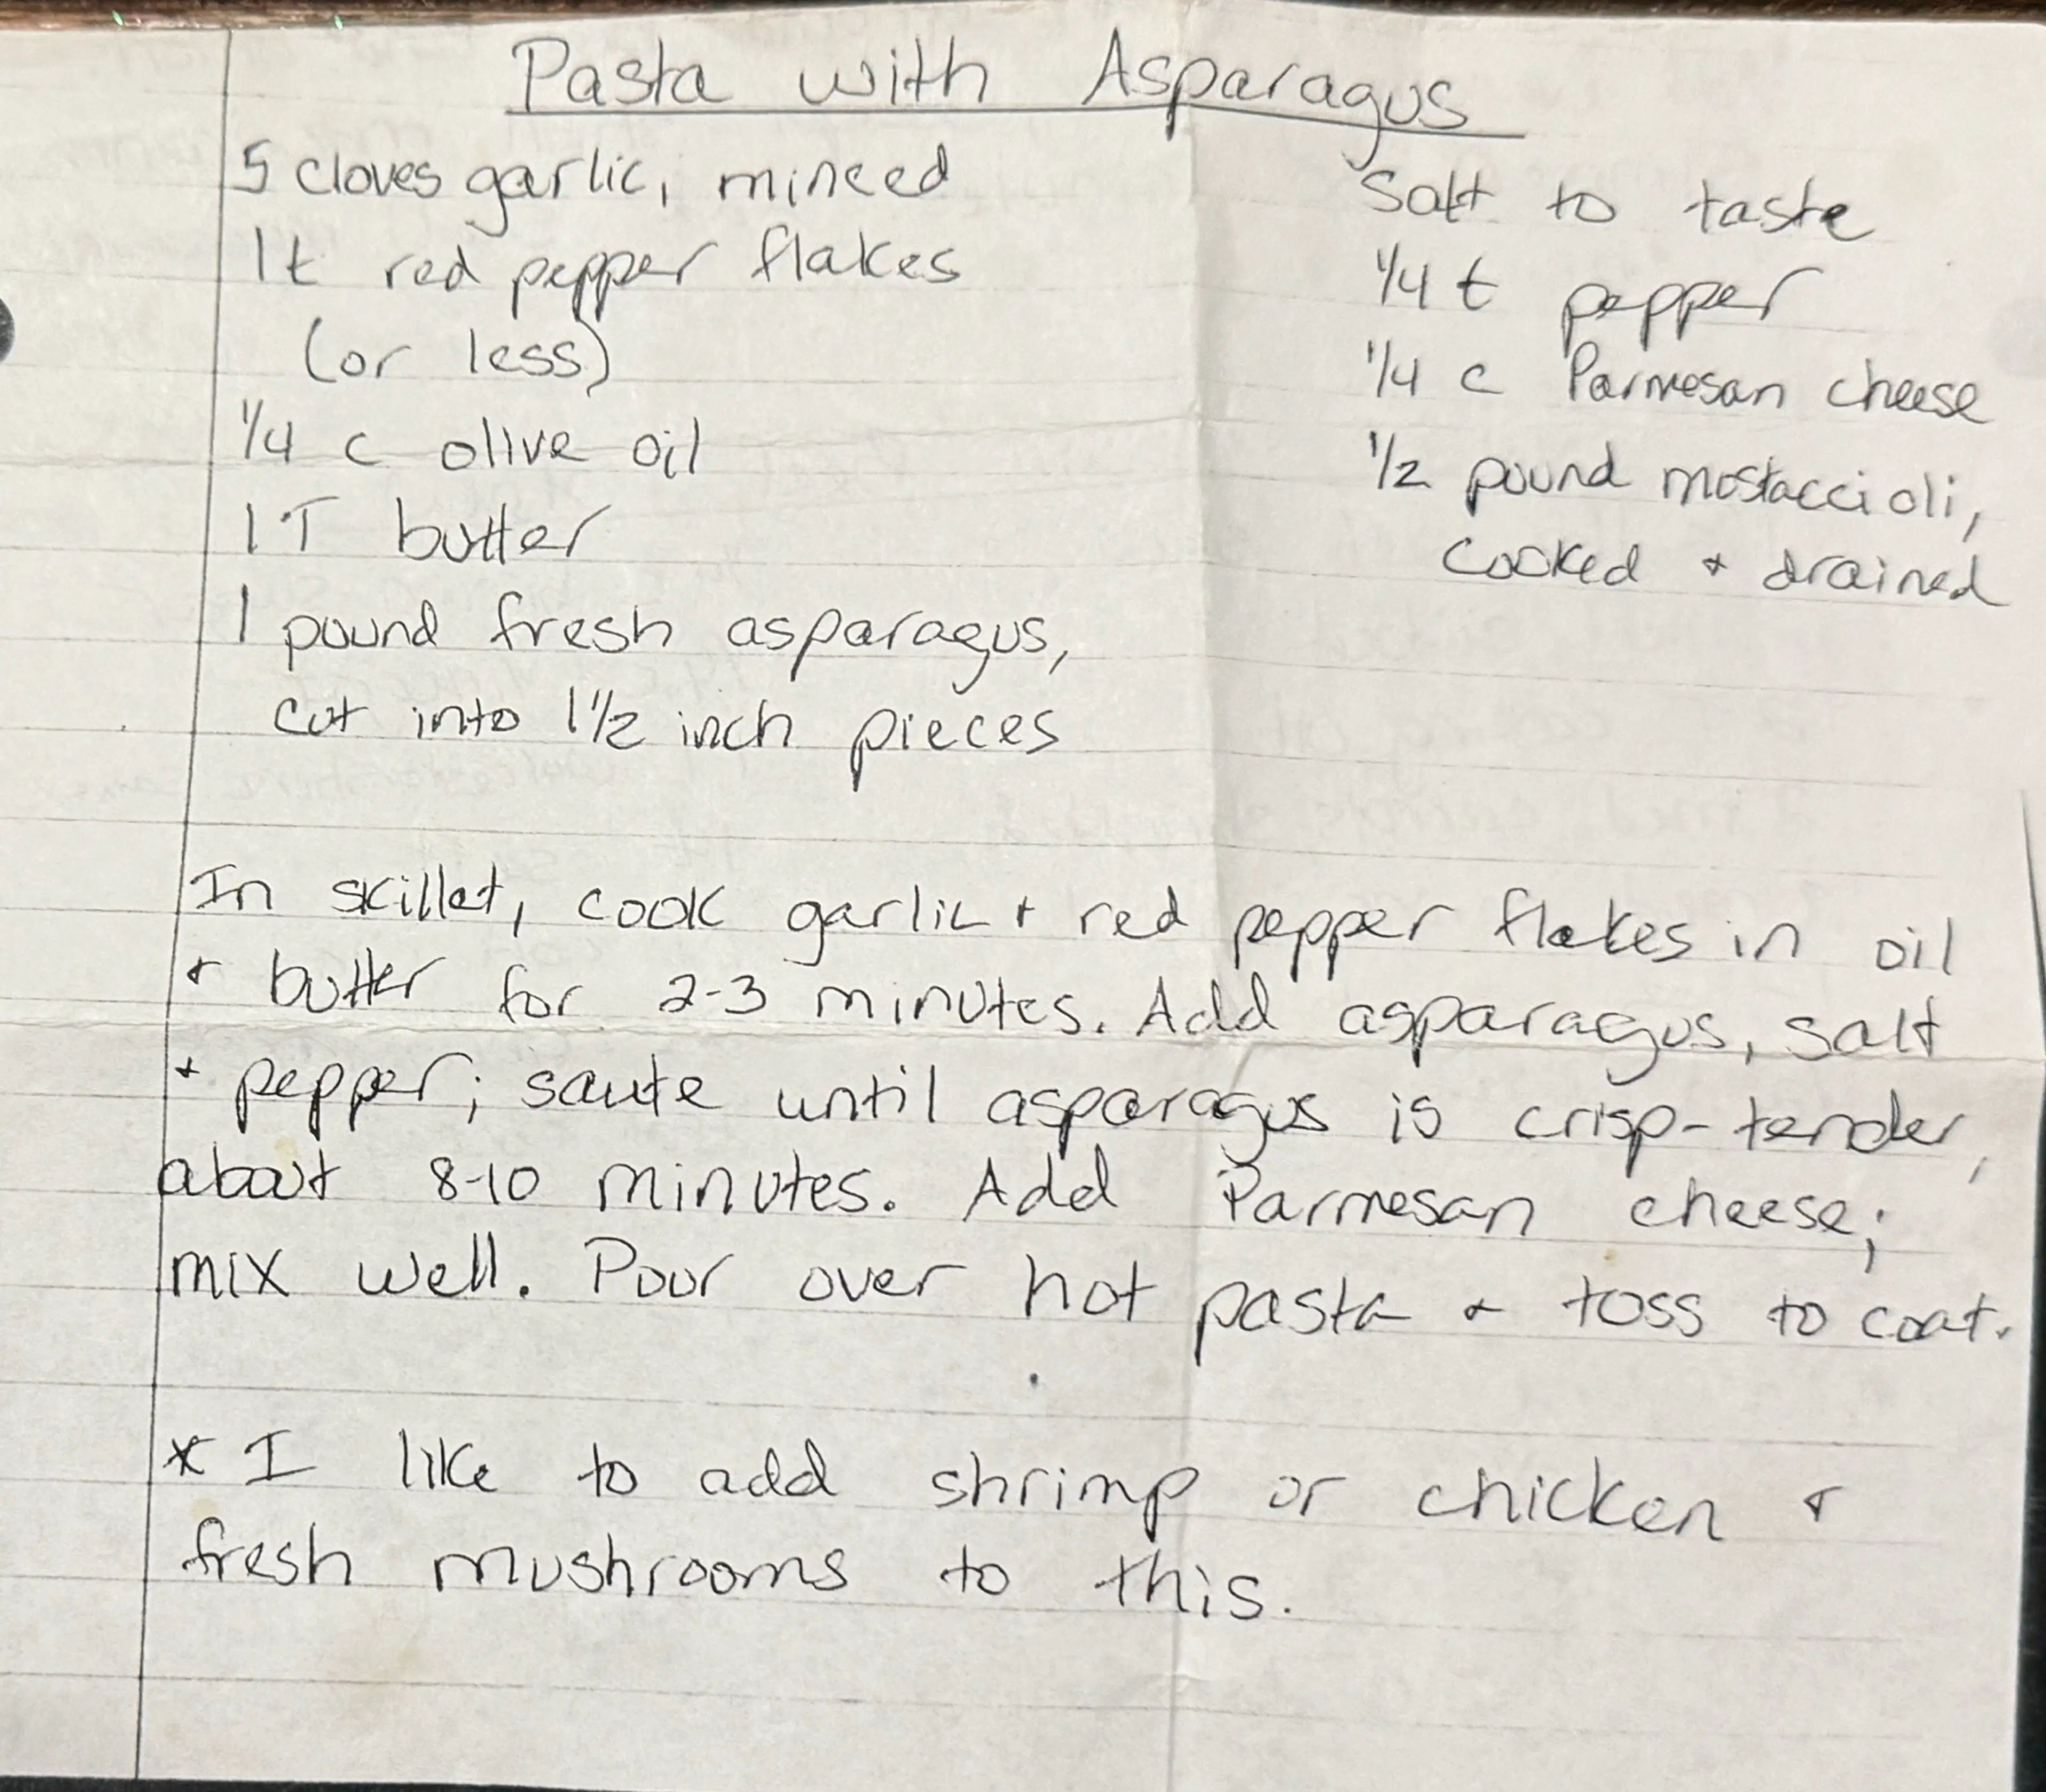 Pasta with Asparagus
5 cloves garlic, minced
1t red pepper flakes
(or less)
1/4 c olive oil
1T butter
1 pound fresh asparagus,
cut into 1 1/2 inch pieces
Salt to taste
1/4 t pepper
1/4 c Parmesan cheese
1/2 pound mostaccioli,
cooked + drained
In skillet, cook garlic + red pepper flakes in oil
+ butter for 2-3 minutes. Add asparagus, salt
+ pepper; saute until asparagus is crisp-tender,
about 8-10 minutes. Add Parmesan cheese;
mix well. Pour over hot pasta + toss to coat.
* I like to add shrimp or chicken +
fresh mushrooms to this.